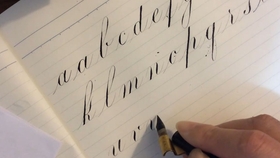 a a b c d e f g
k l m n o p q r s
u v